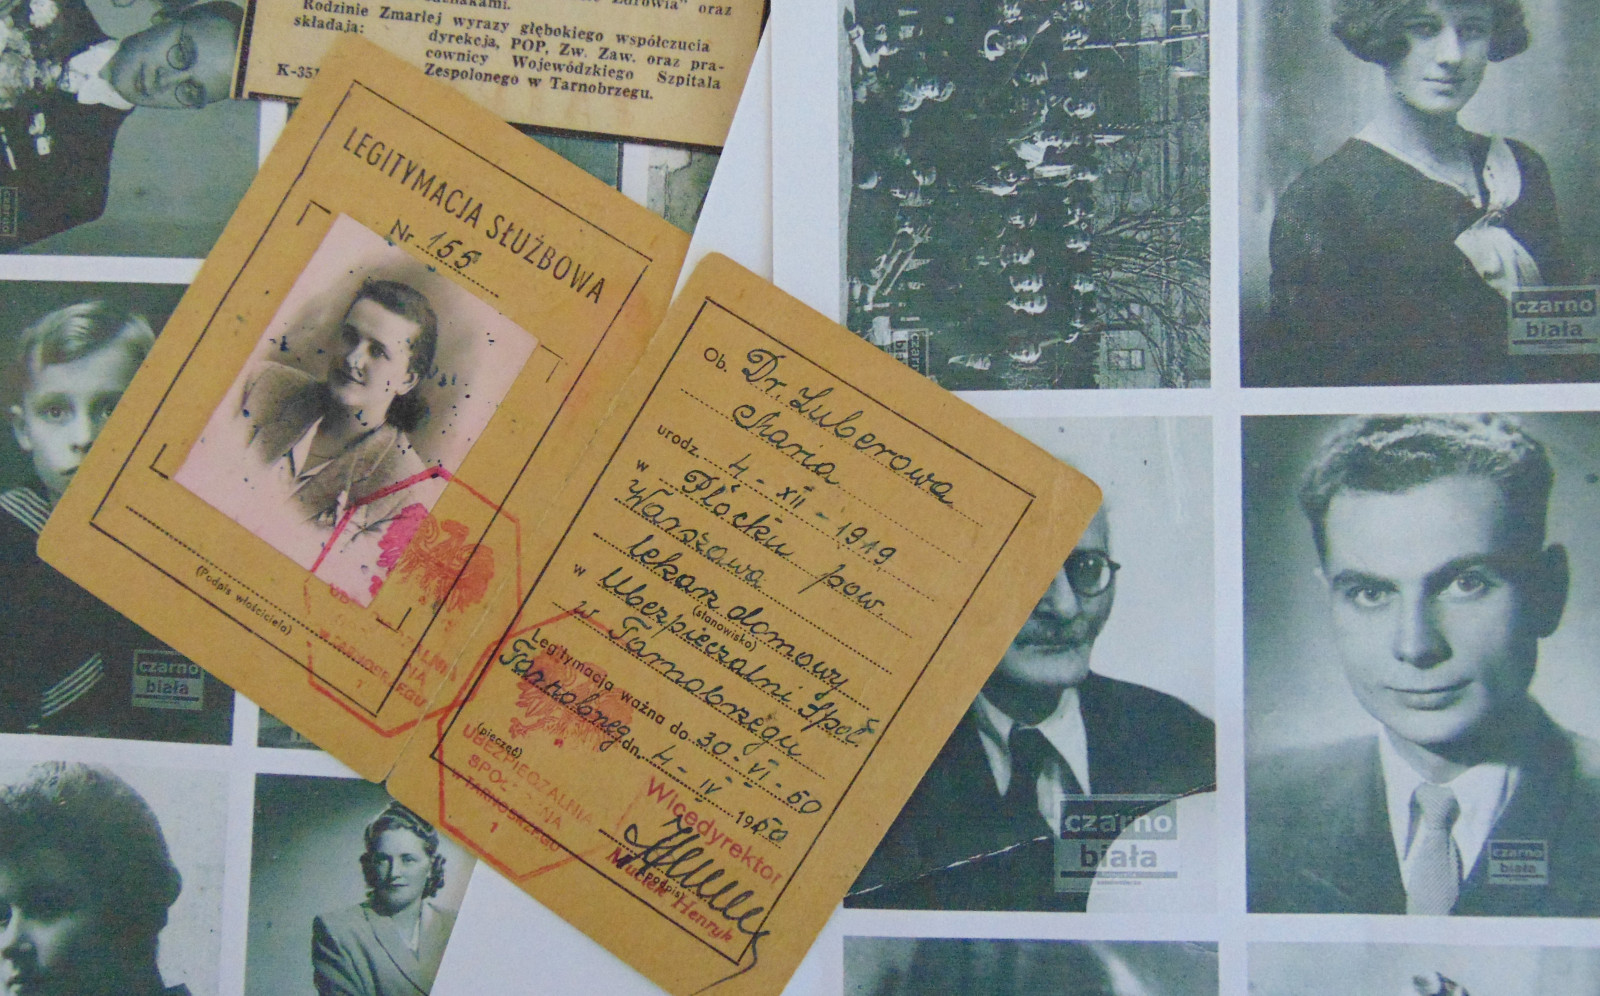 Zdrowia" oraz
Rodzinie Zmarłej wyrazy głębokiego współczucia
składają:
dyrekcja, POP, Zw. Zaw. oraz pra-
cownicy Wojewódzkiego Szpitala
Zespolonego w Tarnobrzegu.
K-351
LEGITYMACJA SŁUŻBOWA
Nr 155
(Podpis właściciela)
Ob. Dr. Luberowa
Maria
urodz. 4-XII-1919
w Płocku pow.
Warszawa
lekarz domowy
(stanowisko)
w Ubezpieczalni Społ.
w Tarnobrzegu
Legitymacja ważna do 30-VI-50
Tarnobrzeg dn. 4-IV 1950
(pieczęć)
UBEZPIECZALNIA
SPOŁ
w TARNOBRZEGU
1
Wicedyrektor
(podpis)
Henryk
UBEZPIECZALNIA
w TARNOBRZEGU
czarno
biała
czarno
biała
czarno
biała
czarno
biała